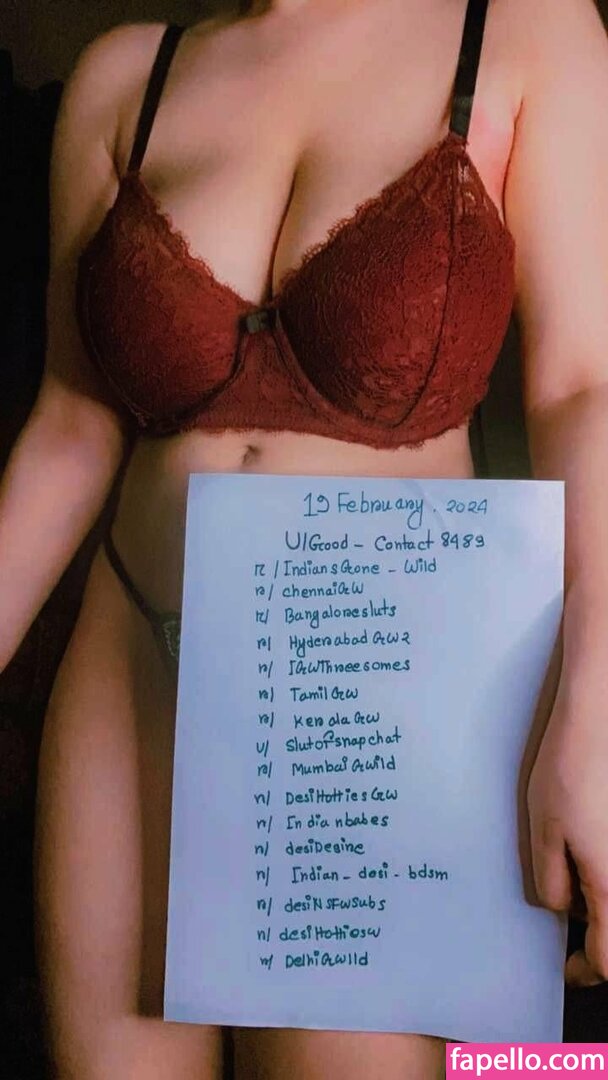 19 February. 2024
U/Good - Contact 8489
r/IndiansGone - Wild
r/chennaiGW
r/Bangaloresluts
r/HyderabadGW2
r/IGWThreesomes
r/TamilGW
r/KeralaGW
u/slutofsnapchat
r/MumbaiGwild
r/DesiHottiesGW
r/Indianbabes
r/desiDesire
r/Indian-desi-bdsm
r/desiNSFWSubs
r/desiHottiesw
r/DelhiGWIld
fapello.com